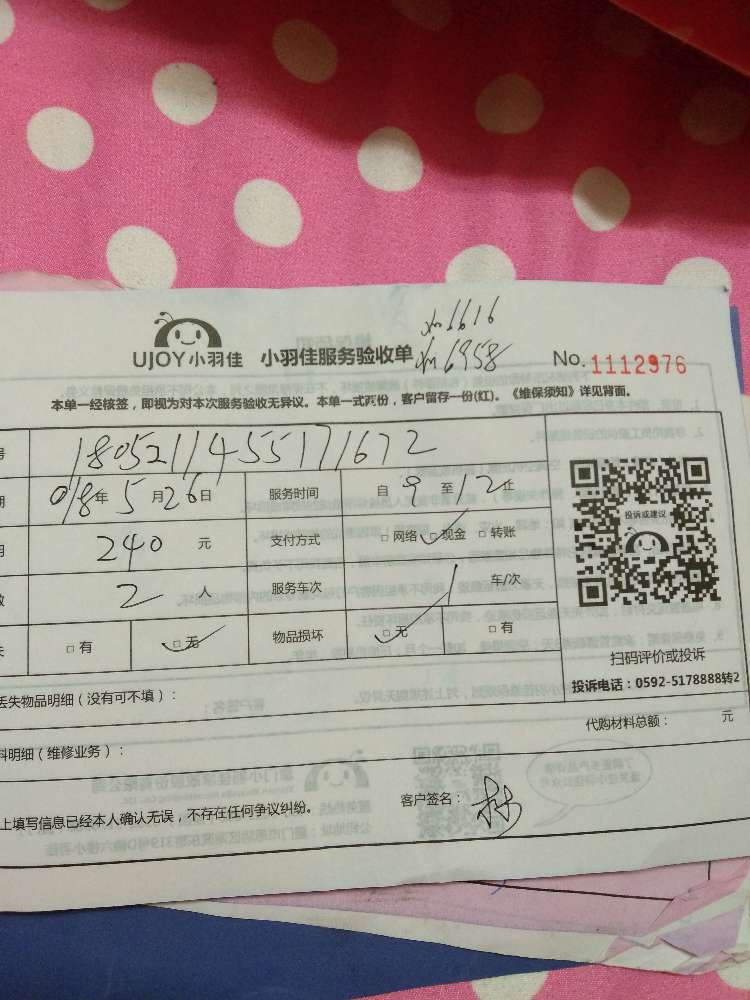 UJOY小羽佳 小羽佳服务验收单 No. 1112976
6616
6958
本单一经核签，即视为对本次服务验收无异议。本单一式两份，客户留存一份(红)。《维保须知》详见背面。
号 1805211455171672
期 018年5月26日 服务时间 自9至12止
用 240 元 支付方式 □网络 □现金 □转账
数 2 人 服务车次 1 车/次
失 □有 □无 物品损坏 □无 □有
投诉或建议
扫码评价或投诉
投诉电话：0592-5178888转2
丢失物品明细（没有可不填）：
代购材料总额： 元
料明细（维修业务）：
上填写信息已经本人确认无误，不存在任何争议纠纷。 客户签名：林